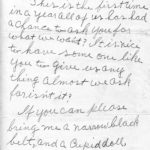 This is the first time
in a year all of us has had
a chance to ask you for
what we want? It is nice
to have some one like
you to give us any
thing almost we ask
for isn't it?
If you can please
bring me a narrow black
belt, and a Cupid doll